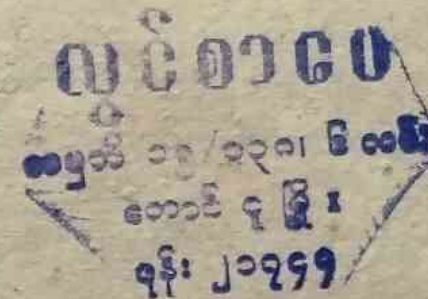 လှိုင်စာပေ
အမှတ် ၁၉/၁၃၈၊ ၆ လမ်း
တောင်ငူမြို့။
ဖုန်း ၂၁၇၄၅